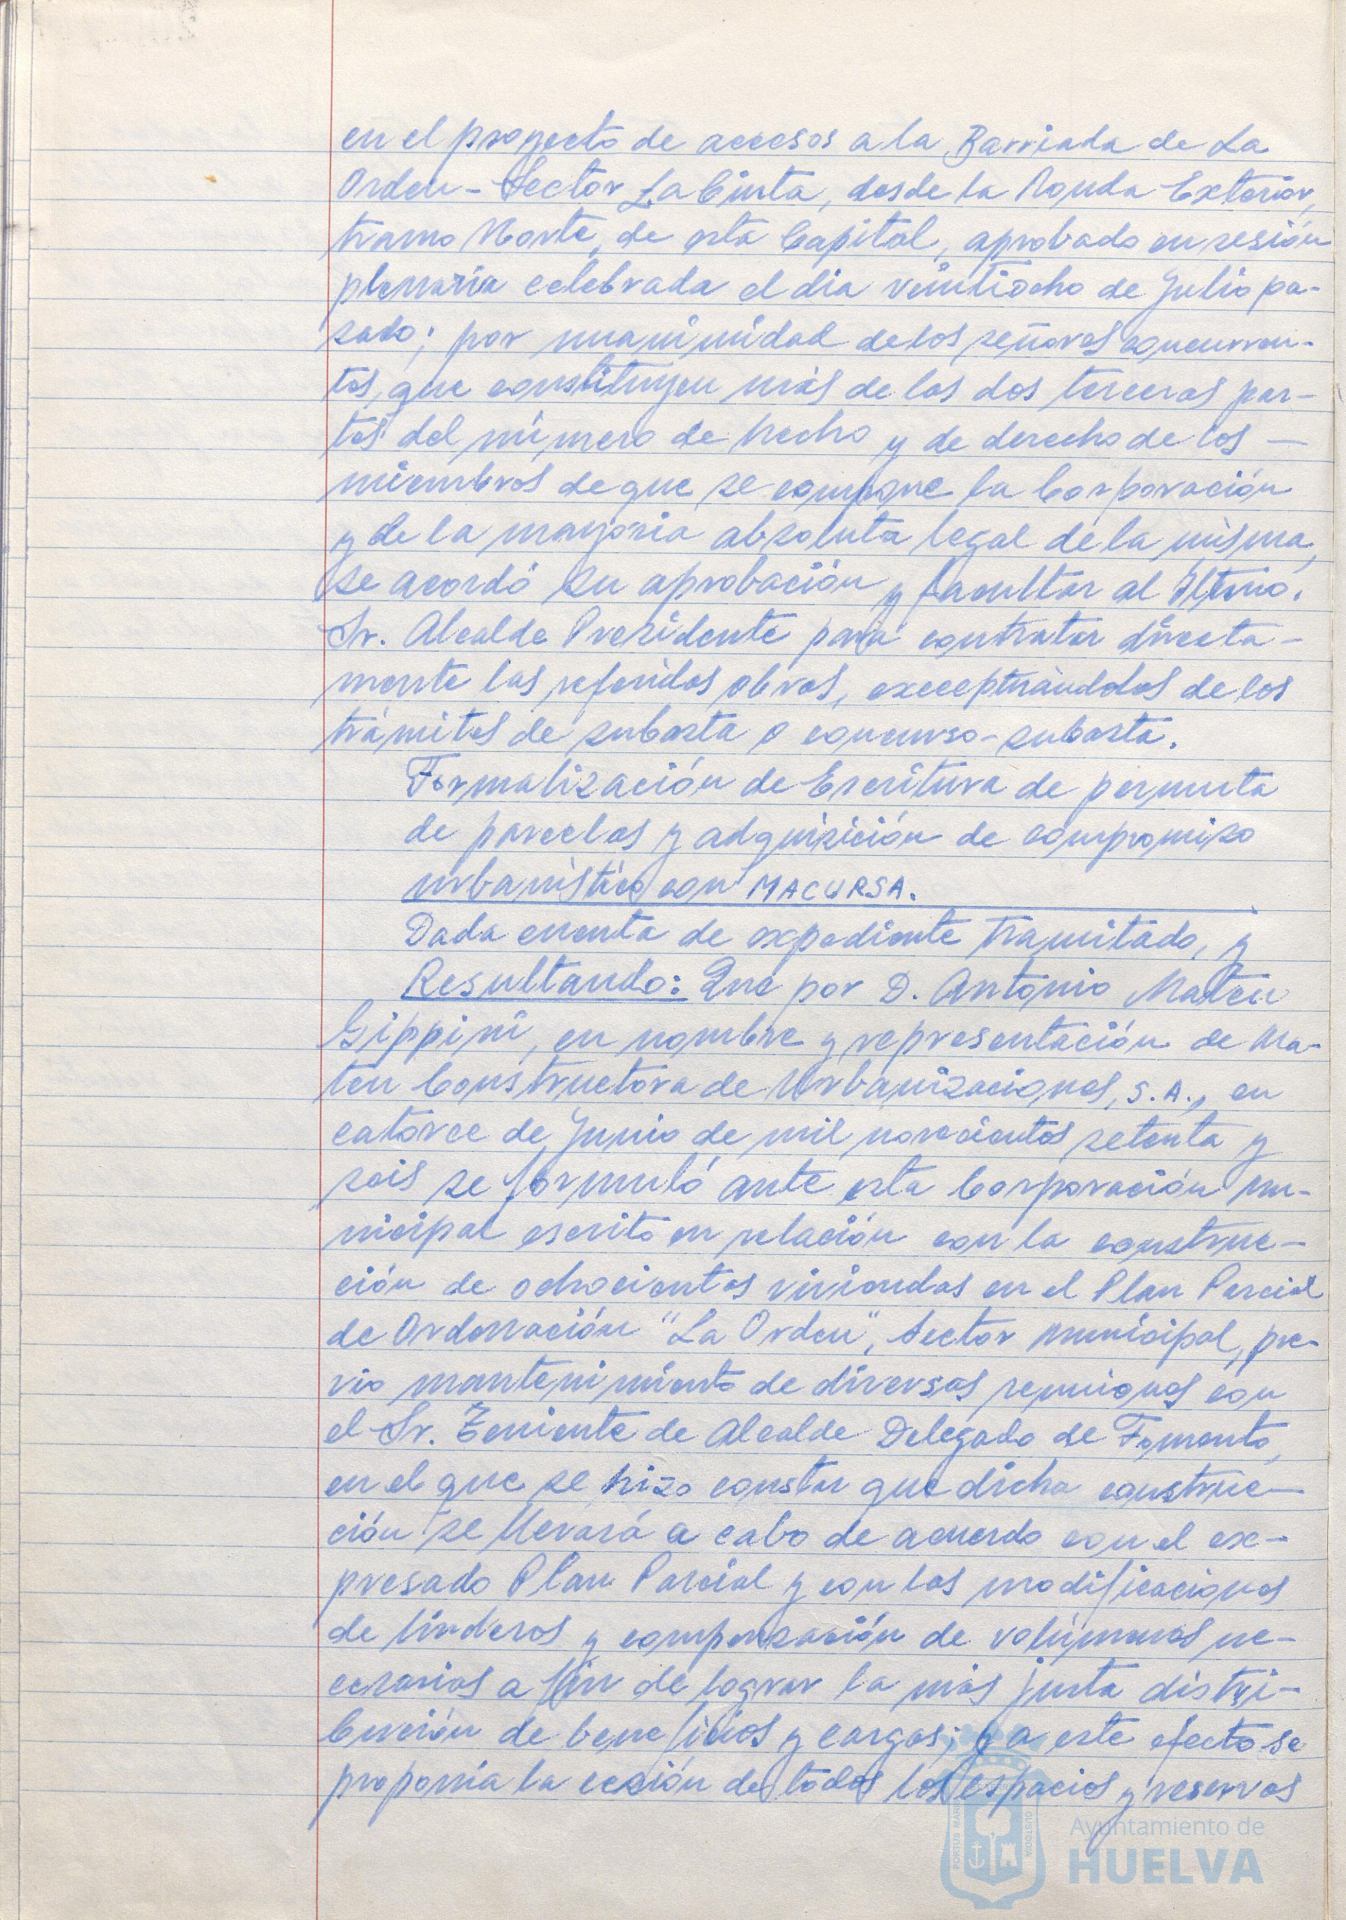 en el proyecto de accesos a la Barriada de La
Orden - Sector La Cinta, desde la Ronda Exterior,
tramo Norte, de esta Capital, aprobado en sesión
plenaria celebrada el dia veintiocho de Julio pa-
sado; por unanimidad de los señores concurren-
tes, que constituyen más de las dos terceras par-
tes del número de hecho y de derecho de los -
miembros de que se compone la Corporación
y de la mayoria absoluta legal de la misma,
se acordó su aprobación y facultar al Iltmo.
Sr. Alcalde Presidente para contratar directa-
mente las referidas obras, exceptuándolas de los
trámites de subasta o concurso-subasta.
Formalización de Escritura de permuta
de parcelas y adquisición de compromiso
urbanístico con MACURSA.
Dada cuenta de expediente tramitado, y
Resultando: Que por D. Antonio Mateu
Gippini, en nombre y representación de Ma-
teu Constructora de Urbanizaciones, S.A., en
catorce de Junio de mil novecientos setenta y
seis se formuló ante esta Corporación mu-
nicipal escrito en relación con la construc-
ción de ochocientas viviendas en el Plan Parcial
de Ordenación "La Orden", Sector Municipal, pre-
vio mantenimiento de diversas reuniones con
el Sr. Teniente de Alcalde Delegado de Fomento,
en el que se hizo constar que dicha construc-
ción se llevará a cabo de acuerdo con el ex-
presado Plan Parcial y con las modificaciones
de linderos y compensación de volúmenes ne-
cesarias a fin de lograr la más justa distri-
bución de beneficios y cargas; y a este efecto se
proponía la cesión de todos los espacios y reservas
PORTUS MARIS CUSTODIA
Ayuntamiento de
HUELVA